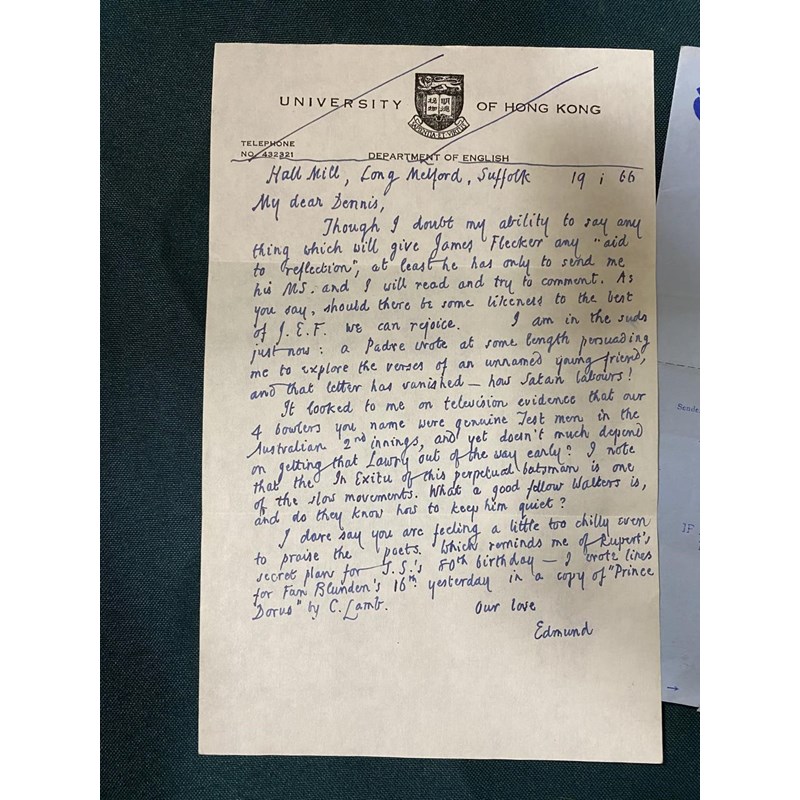 UNIVERSITY OF HONG KONG
SAPIENTIA ET VIRTUS
TELEPHONE
NO. 432321
DEPARTMENT OF ENGLISH
Hall Mill, Long Melford, Suffolk 19 i 66
My dear Dennis,
Though I doubt my ability to say any
thing which will give James Flecker any "aid
to reflection", at least he has only to send me
his MS. and I will read and try to comment. As
you say, should there be some likeness to the best
of J.E.F. we can rejoice. I am in the suds
just now: a Padre wrote at some length persuading
me to explore the verses of an unnamed young friend,
and that letter has vanished — how Satan labours!
It looked to me on television evidence that our
4 bowlers you name were genuine Test men in the
Australian 2nd innings, and yet doesn't much depend
on getting that Lawry out of the way early? I note
that the In Exitu of this perpetual batsman is one
of the slow movements. What a good fellow Walters is,
and do they know how to keep him quiet?
I dare say you are feeling a little too chilly even
to praise the poets. Which reminds me of Rupert's
secret plans for S.S.'s 80th birthday — I wrote lines
for Fan Blunden's 16th yesterday in a copy of "Prince
Dorus" by C. Lamb. Our love
Edmund
Sende
IF